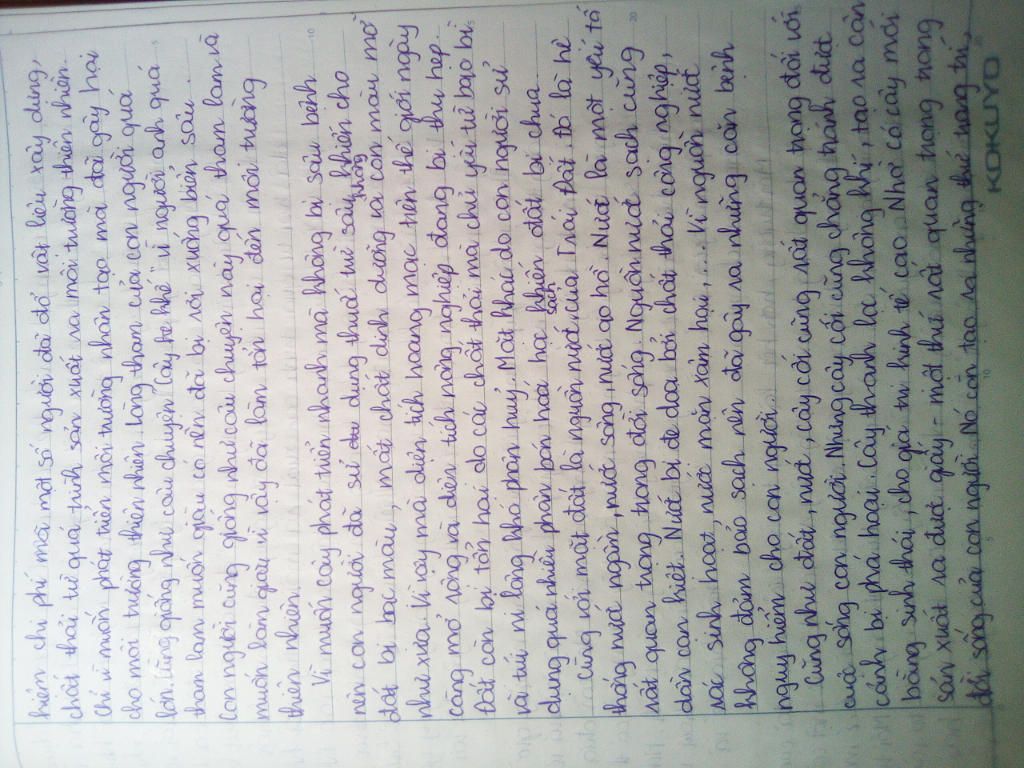 hiểm chi phí mà một số người đã đổ vật liệu xây dựng,
chất thải từ quá trình sản xuất ra môi trường thiên nhiên.
Chỉ vì muốn phát triển môi trường nhân tạo mà đã gây hại
cho môi trường thiên nhiên. Lòng tham của con người quá
lớn. Cũng giống như câu chuyện "Cây khế" vì người anh quá
tham lam muốn giàu có nên đã bị rơi xuống biển sâu.
Con người cũng giống như câu chuyện này quá tham lam và
muốn làm giàu vì vậy đã làm tổn hại đến môi trường
thiên nhiên.
Vì muốn cây phát triển nhanh mà không bị sâu bệnh
nên con người đã sử dụng thuốc trừ sâu khiến cho
đất bị bạc màu, mất chất dinh dưỡng và không còn màu mỡ
như xưa. Vì vậy mà diện tích hoang mạc trên thế giới ngày
càng mở rộng và diện tích nông nghiệp đang bị thu hẹp.
Đất còn bị tổn hại do các chất thải mà chủ yếu từ bao bì
và túi ni lông khó phân huỷ. Mặt khác do con người sử
dụng quá nhiều phân bón hoá học khiến đất bị chua.
Cùng với mặt đất là nguồn nước sạch của Trái Đất. Đó là hệ
thống nước ngầm, nước sông, nước ao hồ. Nước là một yếu tố
rất quan trọng trong đời sống. Nguồn nước sạch cũng
dần cạn kiệt. Nước bị đe doạ bởi chất thải công nghiệp,
rác sinh hoạt, nước mặn xâm hại,... Vì nguồn nước
không đảm bảo sạch nên đã gây ra những căn bệnh
nguy hiểm cho con người.
Cũng như đất, nước, cây cối cũng rất quan trọng đối với
cuộc sống con người. Nhưng cây cối cũng chẳng tránh được
cảnh bị phá hoại. Cây thanh lọc không khí, tạo ra cân
bằng sinh thái, cho giá trị kinh tế cao. Nhờ có cây mới
sản xuất ra được giấy - một thứ rất quan trọng trong
đời sống của con người. Nó còn tạo ra những thứ trang trí,
KOKUYO